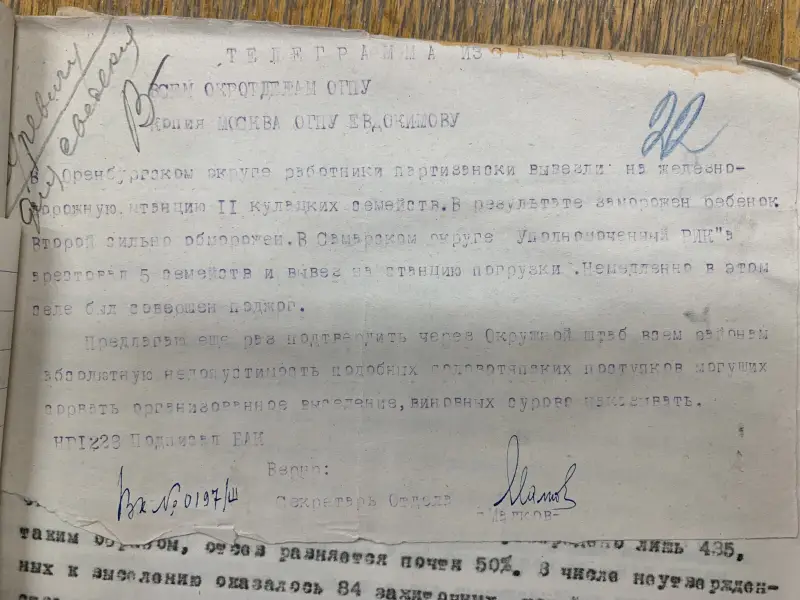 ТЕЛЕГРАММА ИЗ
ВСЕМ ОКРОТДЕЛАМ ОГПУ
Копия МОСКВА ОГПУ ЕВДОКИМОВУ
22
В Оренбургском округе работники партизански вывезли на железно-
дорожную станцию II кулацких семейств. В результате заморожен ребенок
второй сильно обморожен. В Самарском округе Уполномоченный РИК"а
арестовал 5 семейств и вывез на станцию погрузки. Немедленно в этом
селе был совершен поджог.
Предлагаю еще раз подтвердить через Окружной штаб всем районам
абсолютную недопустимость подобных головотяпских поступков могущих
сорвать организованное выселение, виновных сурово наказывать.
НР1223 Подписал БАК
Верно:
Вх № 0197/Ш
Секретарь Отдела
лишь 435,
таким образом, отсев разняется почти 50%. В числе неутвержден-
ных к выселению оказалось 84 зажиточных